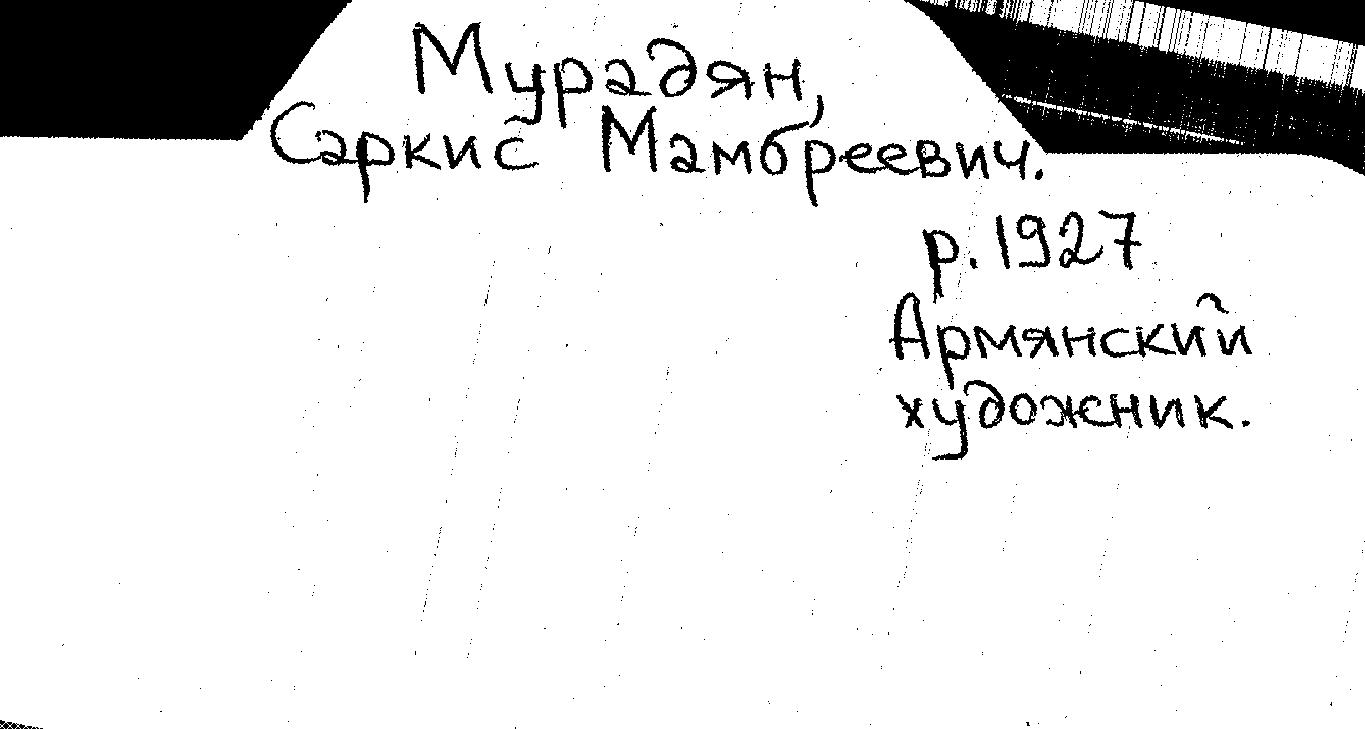 Мурадян,
Саркис Мамбреевич.
р. 1927
Армянский
художник.